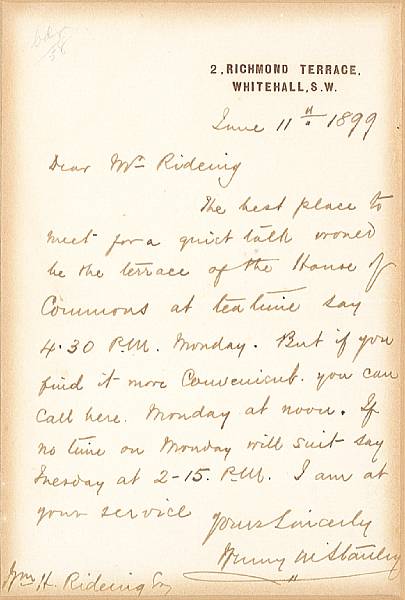 2, RICHMOND TERRACE,
WHITEHALL, S.W.
June 11th 1899
Dear Mr Rideing
The best place to
meet for a quiet talk would
be the terrace of the House of
Commons at tea time say
4.30 P.M. Monday. But if you
find it more convenient. you can
call here. Monday at noon. If
no time on Monday will suit say
Tuesday at 2-15. P.M. I am at
your service
Yours Sincerely
Henry M Stanley
Wm H. Rideing Esq